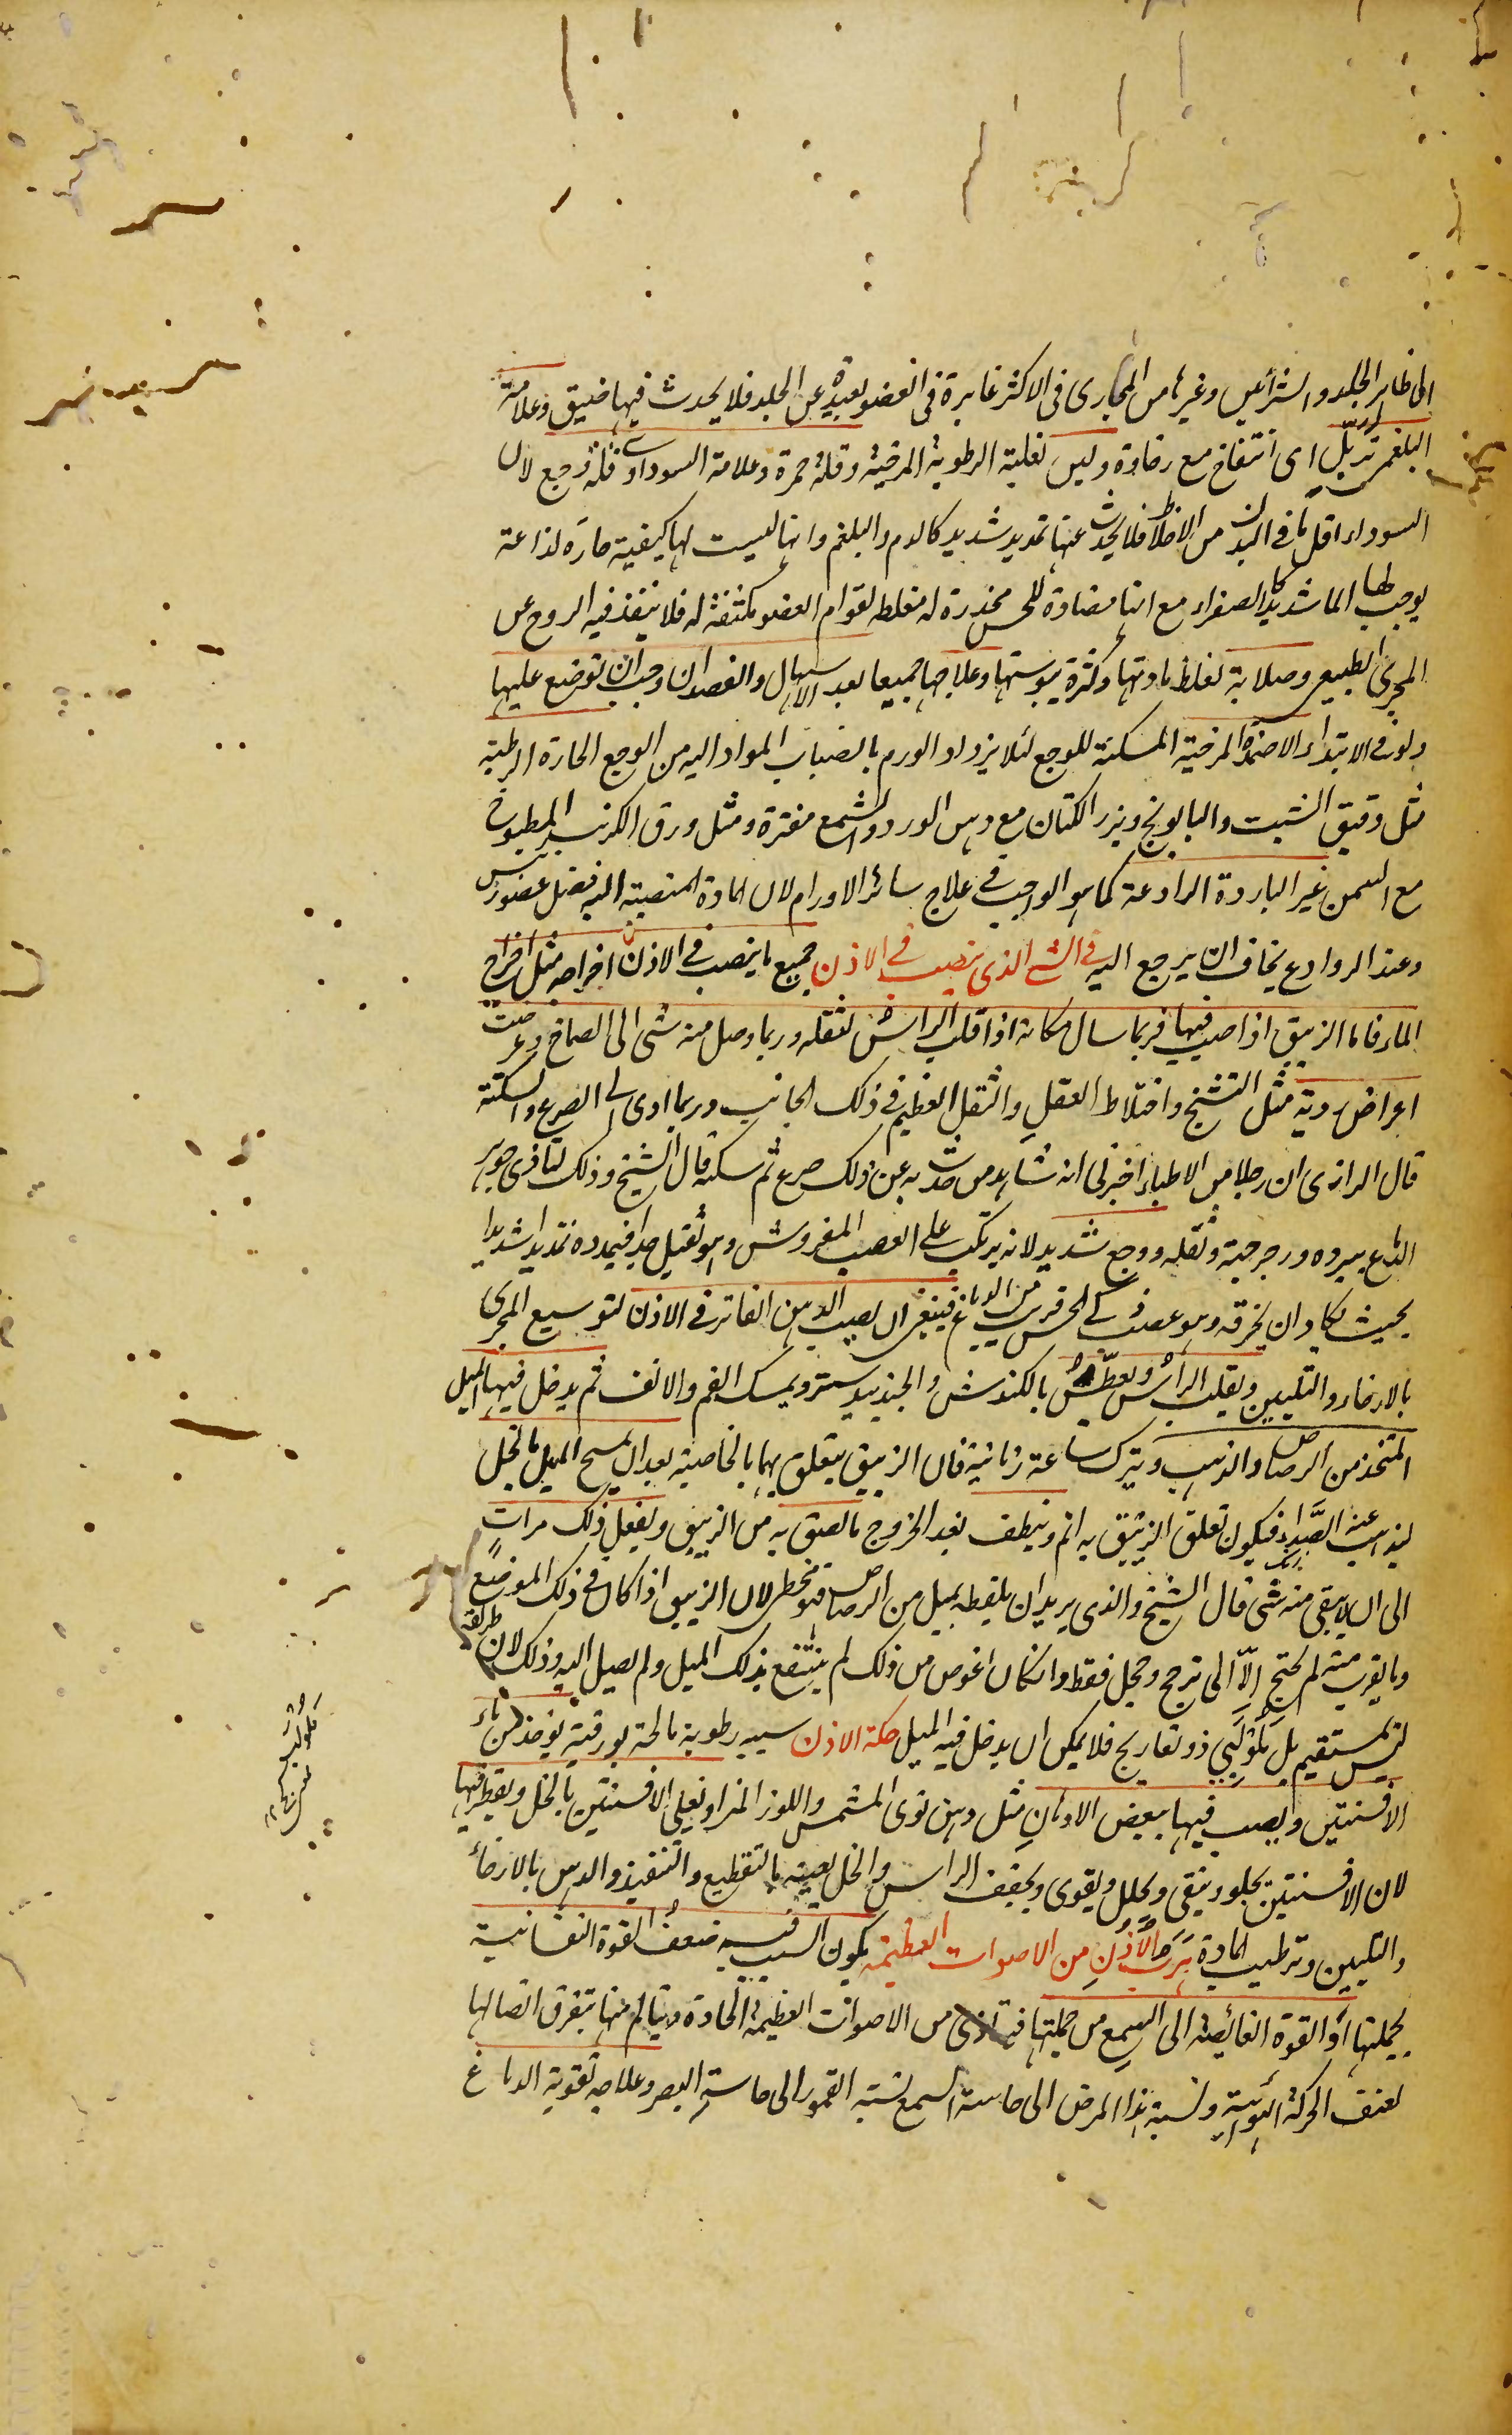 الى ظاهر الجلد والشرائين وغيرها من المجارى فى الاكثر غايرة فى العضو بعيدة عن الجلد فلا يحدث فيها ضيق وعلامة
البلغمى تربّل اى انتفاخ مع رخاوة ولين لغلبة الرطوبة المرخية وقلة حمرة وعلامة السوداوى قلة وجع لان
السوداء اقل ما فى البدن من الاخلاط فلا يحدث عنها تمديد شديد كالدم والبلغم وانها ليست لها كيفية حارة لذاعة
يوجب لها الما شديدا كالصفراء مع انها مضادة للحس مخدرة له مغلظه لقوام العضو مكثفة له فلا ينفذ فيه الروح عن
المجرى الطبيعى وصلابة لغلظ مادتها وكثرة يبوستها وعلاجها جميعا بعد الاسهال والفصد ان وجب ان توضع عليها
ولو فى الابتداء الاضمدة المرخية المسكنة للوجع لئلا يزداد الورم بانصباب المواد اليه من الوجع الحارة الرطبة
مثل دقيق الشبت والبابونج وبزر الكتان مع دهن الورد والشمع مفترة ومثل ورق الكرنب المطبوخ
مع السمن غير الباردة الرادعة كما هو الواجب فى علاج سائر الاورام لان المادة المنصبة اليه فضل عضو رئيس
وعند الروادع يخاف ان يرجع اليه فى الشئ الذى ينصب فى الاذن جميع ما ينصب فى الاذن اخراجه مثل اخراج
الماء فاما الزيبق اذا صب فيها فربما سال مكانه اذا قلب الراس لثقله وربما وصل منه شئ الى الصماخ وعرضت
اعراض ردية مثل التشنج واختلاط العقل والثقل العظيم فى ذلك الجانب وربما ادى الى الصرع والسكتة
قال الرازى ان رجلا من الاطباء اخبرنى انه شاهد من حدث به عن ذلك صرع ثم سكتة قال الشيخ وذلك لتاذى جوهر
الدماغ ببرده ورجرجته وثقله ووجع شديد لانه يرتكب على العصب المفروش وهو ثقيل جدا فيمدده تمديدا شديدا
بحيث يكاد ان يخرقه وهو عصب ذكى الحس قريب من الدماغ فينبغى ان يصب الدهن الفاتر فى الاذن لتوسيع المجرى
بالارخاء والتليين ويقلب الراس ويعطّس بالكندش والجندبيدستر ويمسك الفم والانف ثم يدخل فيها الميل
المتخذ من الرصاص والذهب ويترك ساعة زمانية فان الزيبق يتعلق بهما بالخاصية بعد ان يمسح الميل بالخل
ليذهب عنه الصداء فيكون تعلق الزيبق به اتم وينظف بعد الخروج ما لصق به من الزيبق ويفعل ذلك مرات
الى ان لا يبقى منه شئ قال الشيخ والذى يريد ان يلقطه بميل من الرصاص فهو مخطئ لان الزيبق اذا كان فى ذلك الموضع
وما يقرب منه لم يحتج إلاّ الى ترجح وحجل فقط وان كان اغوص من ذلك لم ينتفع بذلك الميل ولم يصل اليه وذلك لان طريقه
ليس مستقيم بل لَوْلَبِى ذو تعاريج فلا يمكن ان يدخل فيه الميل حكة الاذن سببه رطوبة مالحة بورقية يؤخذ من ماء
الافسنتين ويصب فيها ببعض الادهان مثل دهن نوى المشمس واللوز المر او يغلى الافسنتين بالخل ويقطر فيها
لان الافسنتين يجلو وينقى ويحلل ويقوى ويجفف الراس والخل يعينه بالتقطيع والتنفيذ والدهن بالارخاء
والتليين وترطيب المادة هَرَبُ الأذُنِ مِن الاصوات العظيمة يكون السبب فيه ضعف القوة النفسانية
بجملتها او القوة الفائضة الى السمع من جملتها فتتاذى من الاصوات العظيمة الحادة ويتالم منها بتفرق اتصالها
لعنف الحركة الهوائية ونسبة هذا المرض الى حاسة السمع نسبة القمور الى حاسة البصر وعلاجه تقوية الدماغ